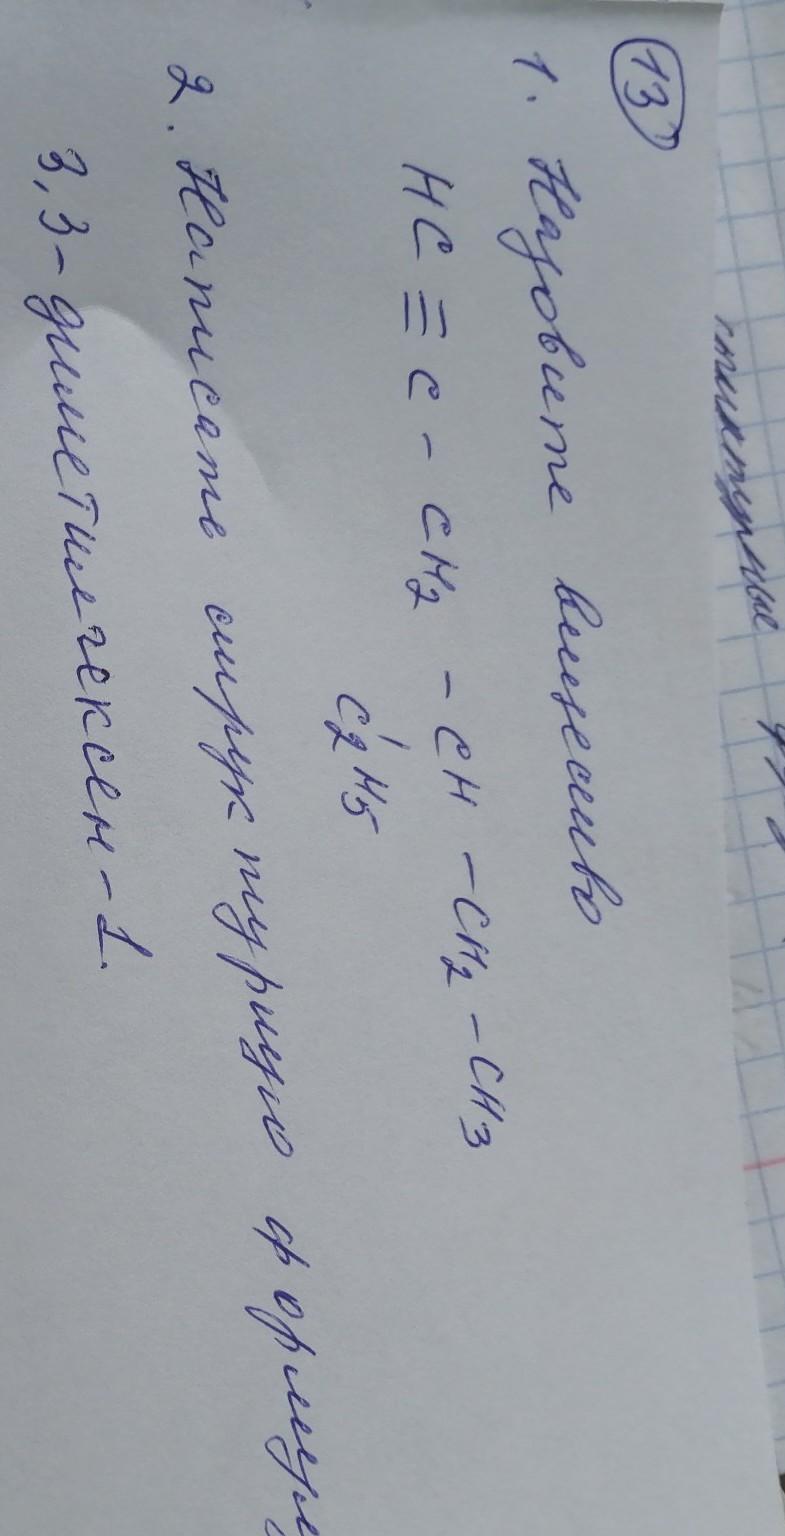 13
1. Назовите вещество
HC ≡ C - CH2 - CH - CH2 - CH3
C2H5
2. Написать структурную
3,3-диметилгексен-1.